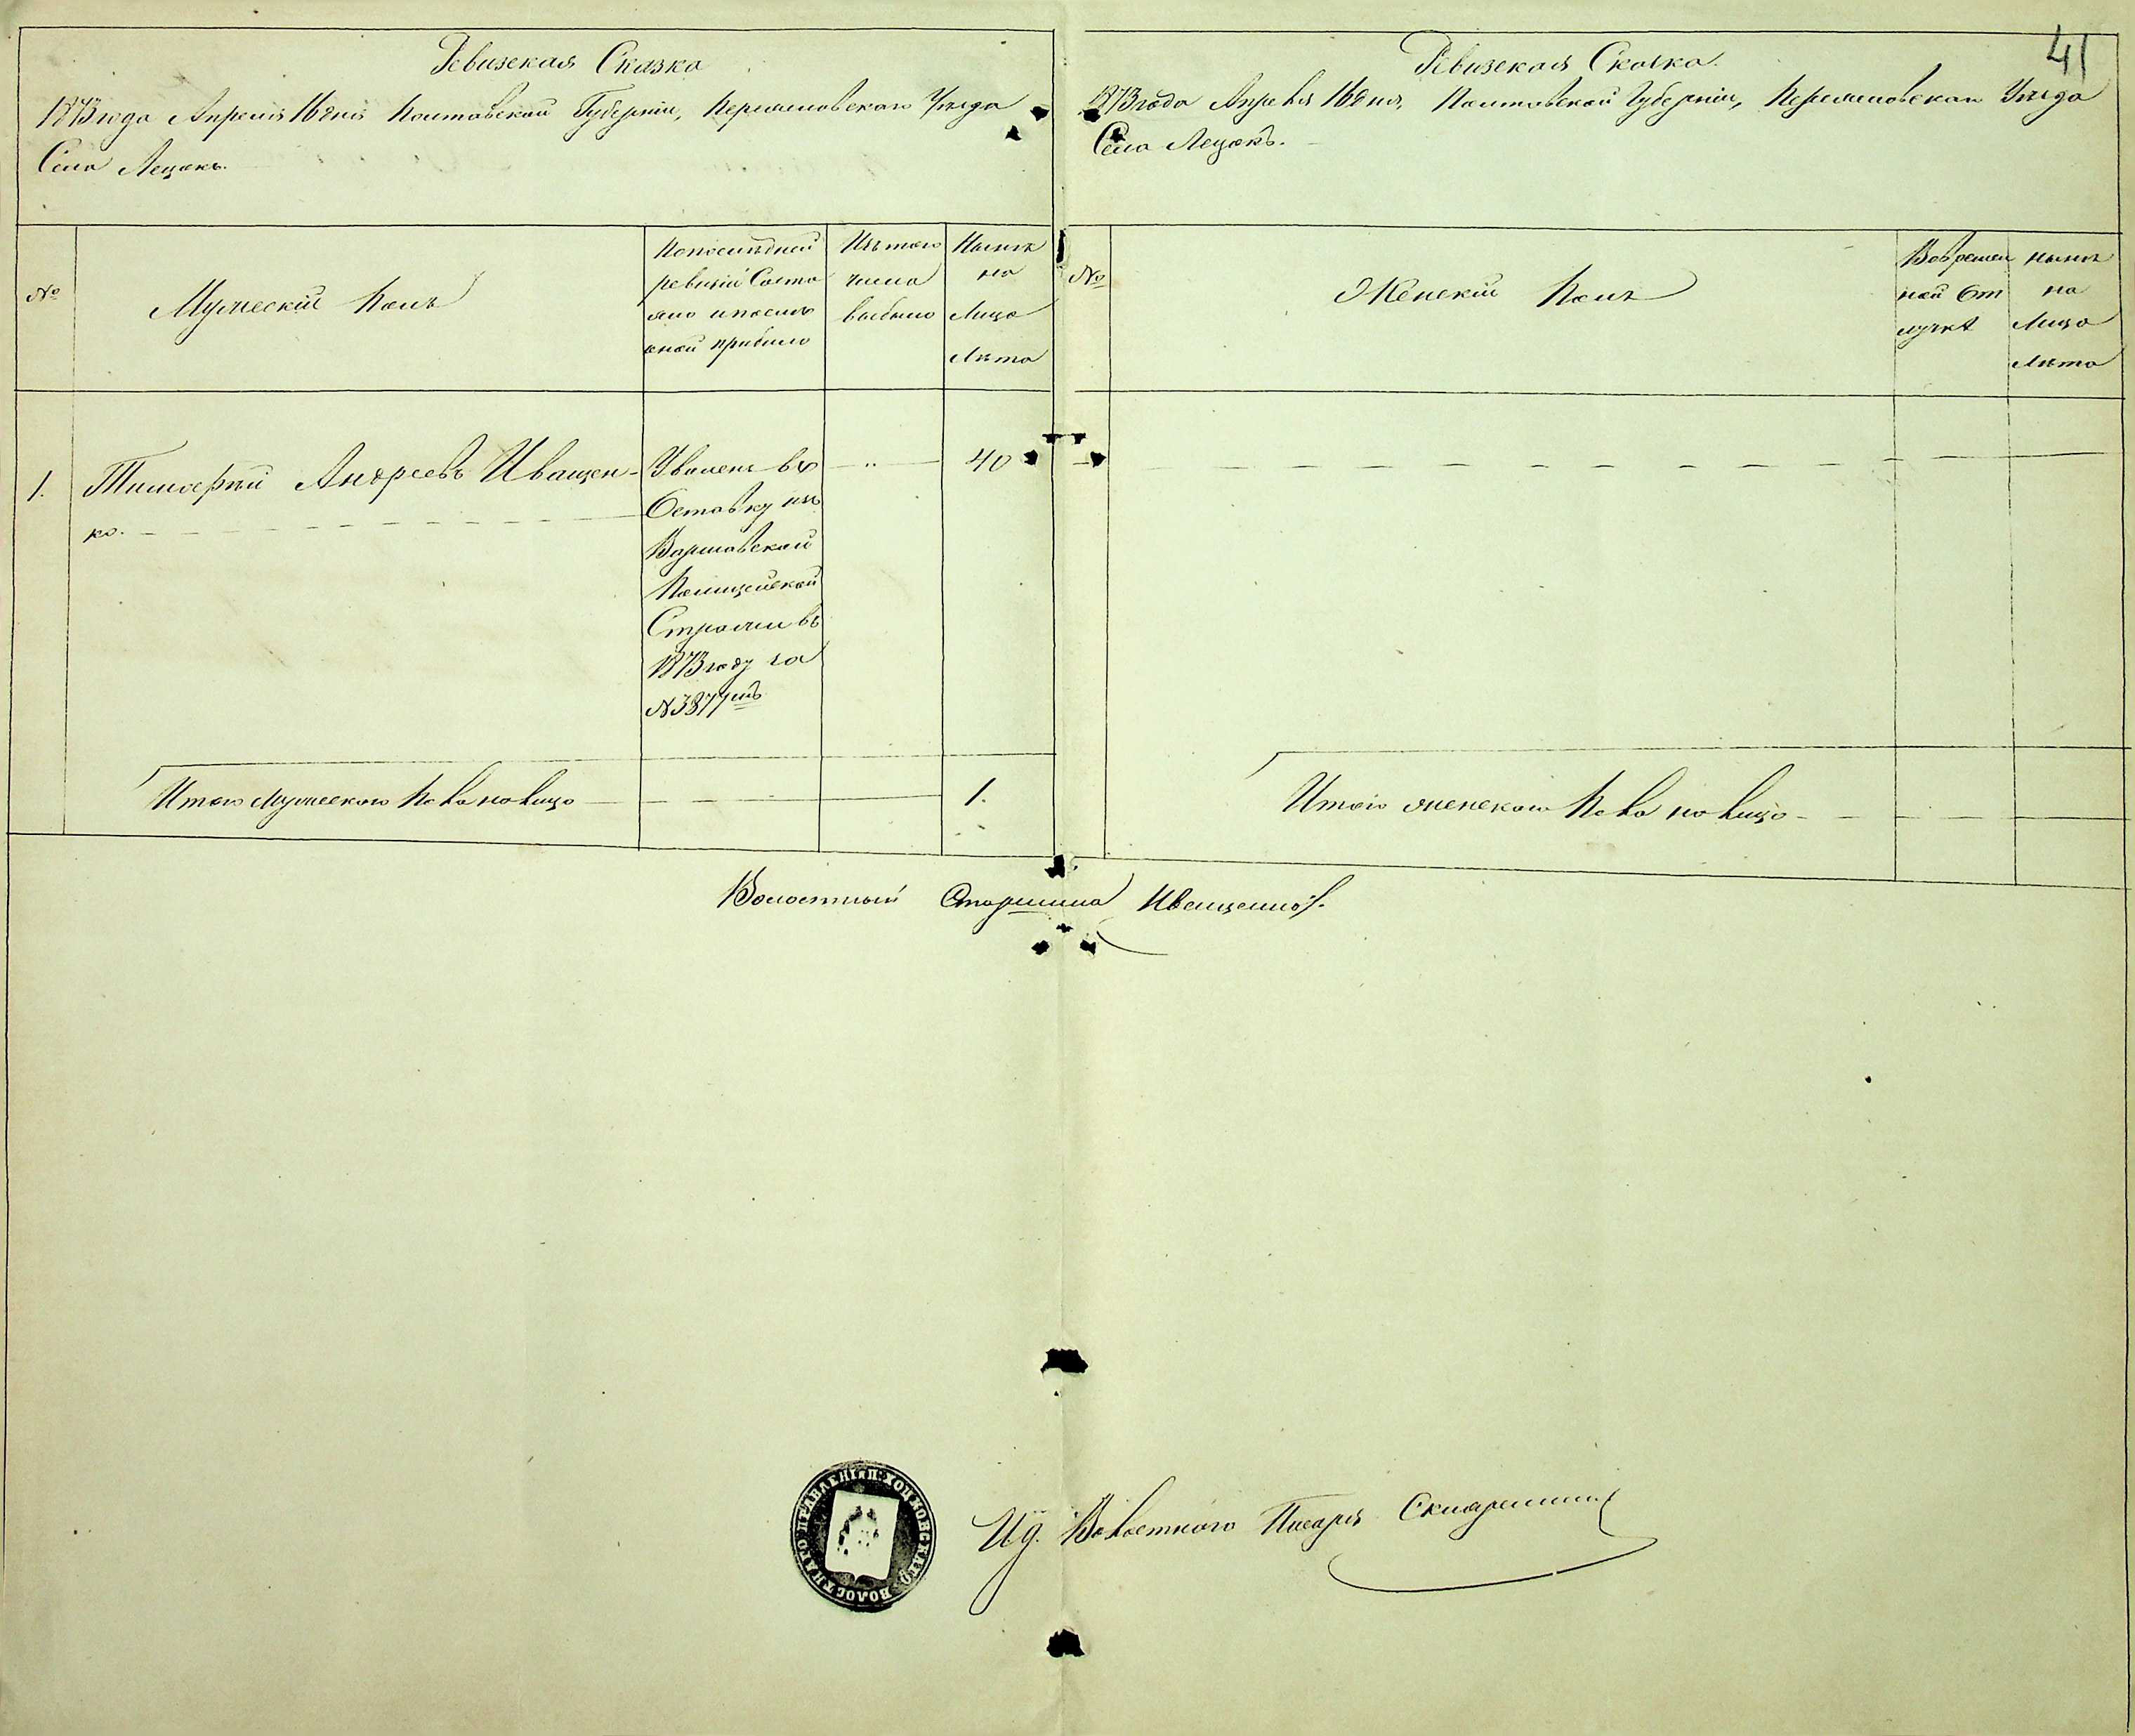 41
Ревизская Сказка
1873 года Апреля 16 дня Полтавской Губерніи, Переяславскаго Уѣзда
Села Лецокъ.
№
Мужескій Полъ
Попослѣдней
ревизіи Состо
яло и послѣ
оной прибыло
Изъ того
числа
выбыло
Нынѣ
на
Лицо
Лѣта
1.
Тимофѣй Андреевъ Иващен-
ко.
Уволенъ въ
Отставку изъ
Варшавской
Полицейской
Стражи въ
1873 году за
№ 3877мъ
"
40
Итого Мужескаго Пола на лицо
1.
Ревизская Сказка.
1873 года Апреля 16 дня, Полтавской Губерніи, Переяславскаго Уѣзда
Села Лецокъ.
№
Женскій Полъ
Вовремен
ной От
лучкѣ
нынѣ
на
Лицо
Лѣта
Итого женскаго Пола на лицо
Волостный Старшина
И.д. Волостнаго Писаря
ХОЦКОВСКАГО ВОЛОСТНАГО ПРАВЛЕНІЯ